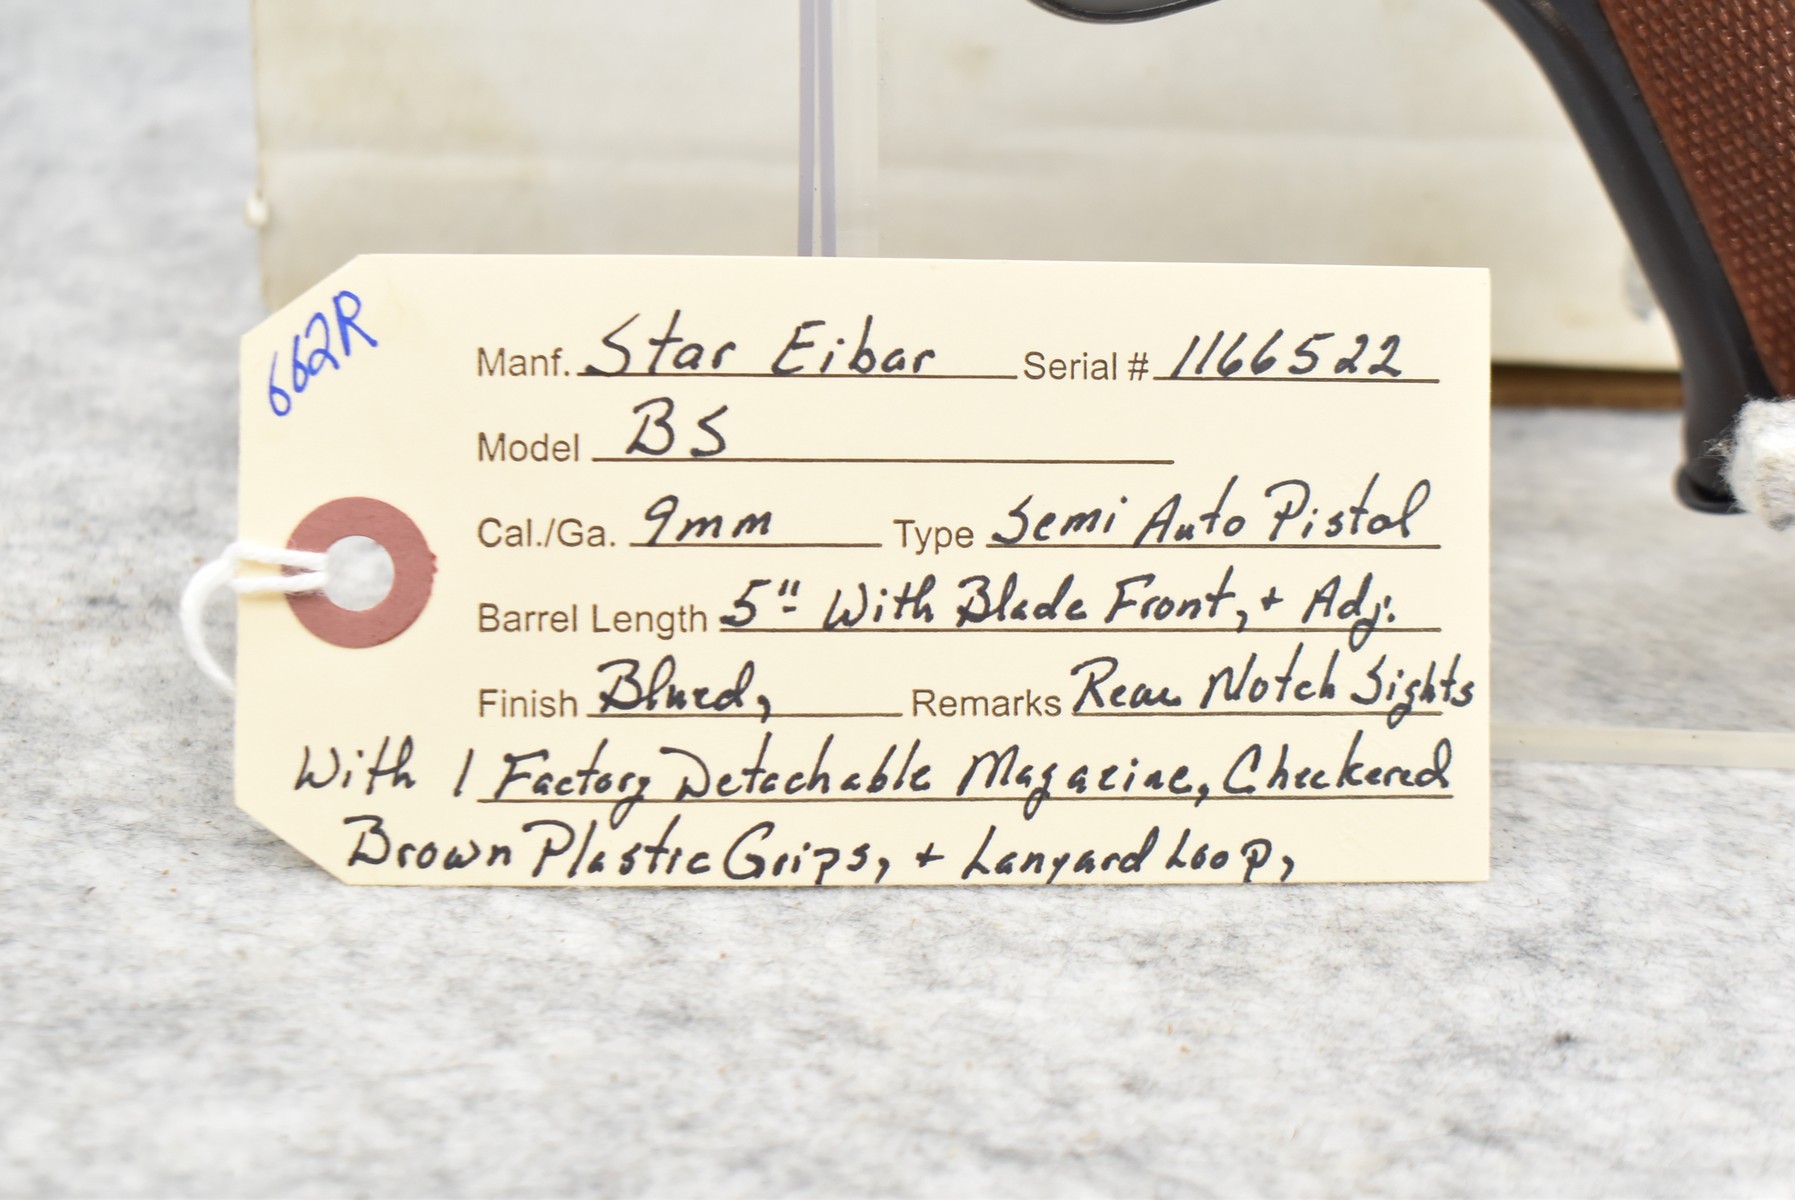 662R
Manf. Star Eibar Serial # 1166522
Model BS
Cal./Ga. 9mm Type Semi Auto Pistol
Barrel Length 5" With Blade Front, + Adj.
Finish Blued, Remarks Rear Notch Sights
With 1 Factory Detachable Magazine, Checkered
Brown Plastic Grips, + Lanyard Loop,